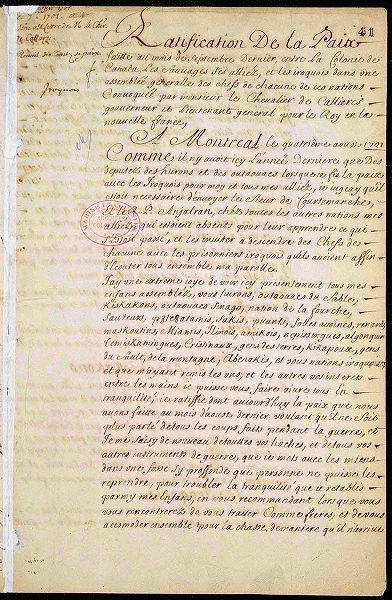 41
1701
Ratification De la Paix
faitte au mois de septembre dernier, entre La Colonie de
Canada, Les sauuages ses alliez, et les iroquois dans vne
assemblée generalle des chefs de chacune de ces nations
Conuoquée par monsieur le Cheualier de Callieres
gouuerneur et Lieutenant general pour le Roy en la
nouuelle france,
iroquois
A Montreal le quatrième aoust 1701
Comme il ny auoit icy l'année derniere que Des
deputez des hurons et des outaouacs lorsque ie fis la paix
auec les Iroquois pour moy et tous mes alliez, ie iugeay qu'il
estoit necessaire denuoyer le sieur de Courtemanche,
et le R. P. Anjalran, chéz toutes les autres nations mes
alliéz qui estoient absents pour leur apprendre ce qui
s'estoit passé, et les inuiter a descendre des Chefs de
chacune auec les prisonniers iroquois qu'ils auoient affin
d'Ecouter tous ensemble ma parolle.
J'ay vne extreme joye de voir icy presentement tous mes
enfans assemblez, vous hurons, outaouacs du sable,
Kiskakons, outaouacs Sinago, nation de la fourche,
sauteurs, Sakis, puants, folles auoines, renards,
maskoutins, Miamis, Ilinois, amikois, nepissingues, algonquins
Temiskamingues, Cristinaux, gens des terres, Kikapoux, gens
du Sault, de la montagne, Abenakis, et vous nations iroquoises
et que m'ayant remis les vns, et les autres vos interests
entre les mains ie puisse vous faire viure tous en
tranquilité; ie ratiffie dont aujourd'huy la paix que nous
auons faitte au mois d'aoust dernier voulant qu'il ne soit
plus parlé de tous les coups, faits pendant la guerre, et
Je me saisy de nouueau de touttes vos haches, et de tous vos
autres instruments de guerre, que ie mets auec les miens
dans vne fosse sy proffonde que personne ne puisse les
reprendre, pour troubler la tranquilité que ie retablis
parmy mes Enfans, en vous recommandant lorsque vous
vous rencontrerez de vous traiter Comme freres, et de vous
accomoder ensemble pour la chasse, de maniere qu'il n'arriue